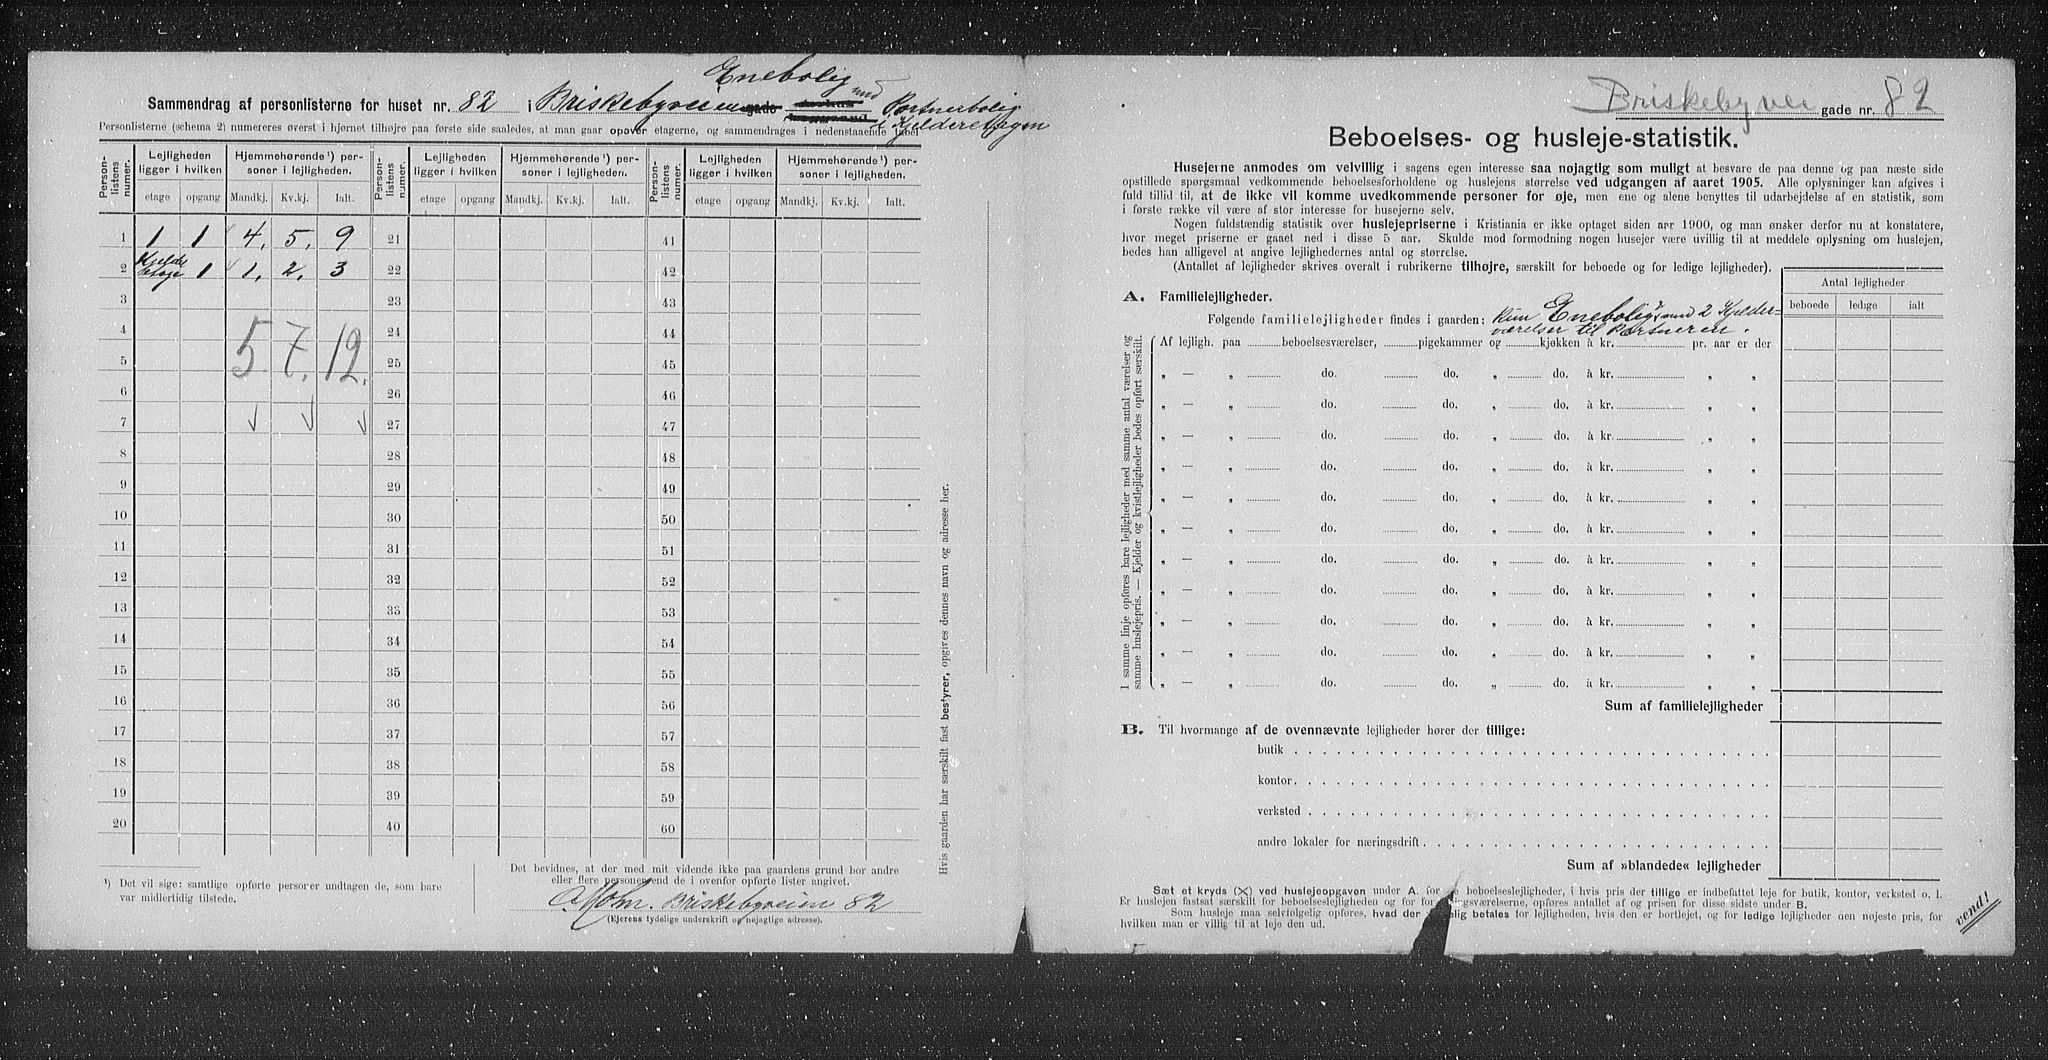 Enebolig med
Sammendrag af personlisterne for huset nr. 82 i Briskebyveien gade Portnerbolig
i Kjelderetagen
Personlisterne (schema 2) numereres øverst i hjørnet tilhøjre paa første side saaledes, at man gaar opover etagerne, og sammendrages i nedenstaaende tabel
Person-listens numer. Lejligheden ligger i hvilken Hjemmehørende¹) personer i lejligheden. Person-listens numer. Lejligheden ligger i hvilken Hjemmehørende¹) personer i lejligheden. Person-listens numer. Lejligheden ligger i hvilken Hjemmehørende¹) personer i lejligheden.
etage opgang Mandkj. Kv.kj. Ialt. etage opgang Mandkj. Kv.kj. Ialt. etage opgang Mandkj. Kv.kj. Ialt.
1 1 1 4. 5. 9 21 41
2 Kjelder etage 1 1. 2. 3 22 42
3 23 43
4 24 44
5. 7. 12.
5 25 45
6 26 46
7 27 47
8 28 48
9 29 49
10 30 50
11 31 51
12 32 52
13 33 53
14 34 54
15 35 55
16 36 56
17 37 57
18 38 58
19 39 59
20 40 60
¹) Det vil sige: samtlige opførte personer undtagen de, som bare
var midlertidig tilstede.
Det bevidnes, at der med mit vidende ikke paa gaardens grund bor andre
eller flere personer end de i ovenfor opførte lister angivet.
Holm. Briskebyveien 82
(Ejerens tydelige underskrift og nøjagtige adresse).
Hvis gaarden har særskilt fast bestyrer, opgives dennes navn og adresse her.
Briskebyvei gade nr. 82
Beboelses- og husleje-statistik.
Husejerne anmodes om velvillig i sagens egen interesse saa nøjagtig som muligt at besvare de paa denne og paa næste side
opstillede spørgsmaal vedkommende beboelsesforholdene og huslejens størrelse ved udgangen af aaret 1905. Alle oplysninger kan afgives i
fuld tillid til, at de ikke vil komme uvedkommende personer for øje, men ene og alene benyttes til udarbejdelse af en statistik, som
i første række vil være af stor interesse for husejerne selv.
Nogen fuldstændig statistik over huslejepriserne i Kristiania er ikke optaget siden aar 1900, og man ønsker derfor nu at konstatere,
hvor meget priserne er gaaet ned i disse 5 aar. Skulde mod formodning nogen husejer være uvillig til at meddele oplysning om huslejen,
bedes han alligevel at angive lejlighedernes antal og størrelse.
(Antallet af lejligheder skrives overalt i rubrikerne tilhøjre, særskilt for beboede og for ledige lejligheder).
Antal lejligheder
beboede ledige ialt
A. Familielejligheder.
Følgende familielejligheder findes i gaarden: kun Enebolig, med 2 Kjelder-
værelser til Portneren.
I samme linje opføres bare lejligheder med samme antal værelser og
samme huslejepris. — Kjelder og kvistlejligheder bedes opført særskilt.
Af lejligh. paa beboelsesværelser, pigekammer og kjøkken à kr. pr. aar er der
„ — „ do. do. „ do. à kr. „ „
„ — „ do. do. „ do. à kr. „ „
„ — „ do. do. „ do. à kr. „ „
„ — „ do. do. „ do. à kr. „ „
„ — „ do. do. „ do. à kr. „ „
„ — „ do. do. „ do. à kr. „ „
„ — „ do. do. „ do. à kr. „ „
„ — „ do. do. „ do. à kr. „ „
„ — „ do. do. „ do. à kr. „ „
„ — „ do. do. „ do. à kr. „ „
„ — „ do. do. „ do. à kr. „ „
Sum af familielejligheder
B. Til hvormange af de ovennævnte lejligheder hører der tillige:
butik
kontor
verksted
andre lokaler for næringsdrift
Sum af »blandede« lejligheder
Sæt et kryds (X) ved huslejeopgaven under A. for beboelseslejligheder, i hvis pris der tillige er indbefattet leje for butik, kontor, verksted o. l.
Er huslejen fastsat særskilt for beboelseslejligheden og for for gsværelserne, opføres antallet af og prisen for disse sidste under B.
Som husleje maa selvfølgelig opføres, hvad der lig betales for lejligheden, hvis den er bortlejet, og for ledige lejligheder den nøjeste pris, for
hvilken man er villig til at leje den ud.
vend!